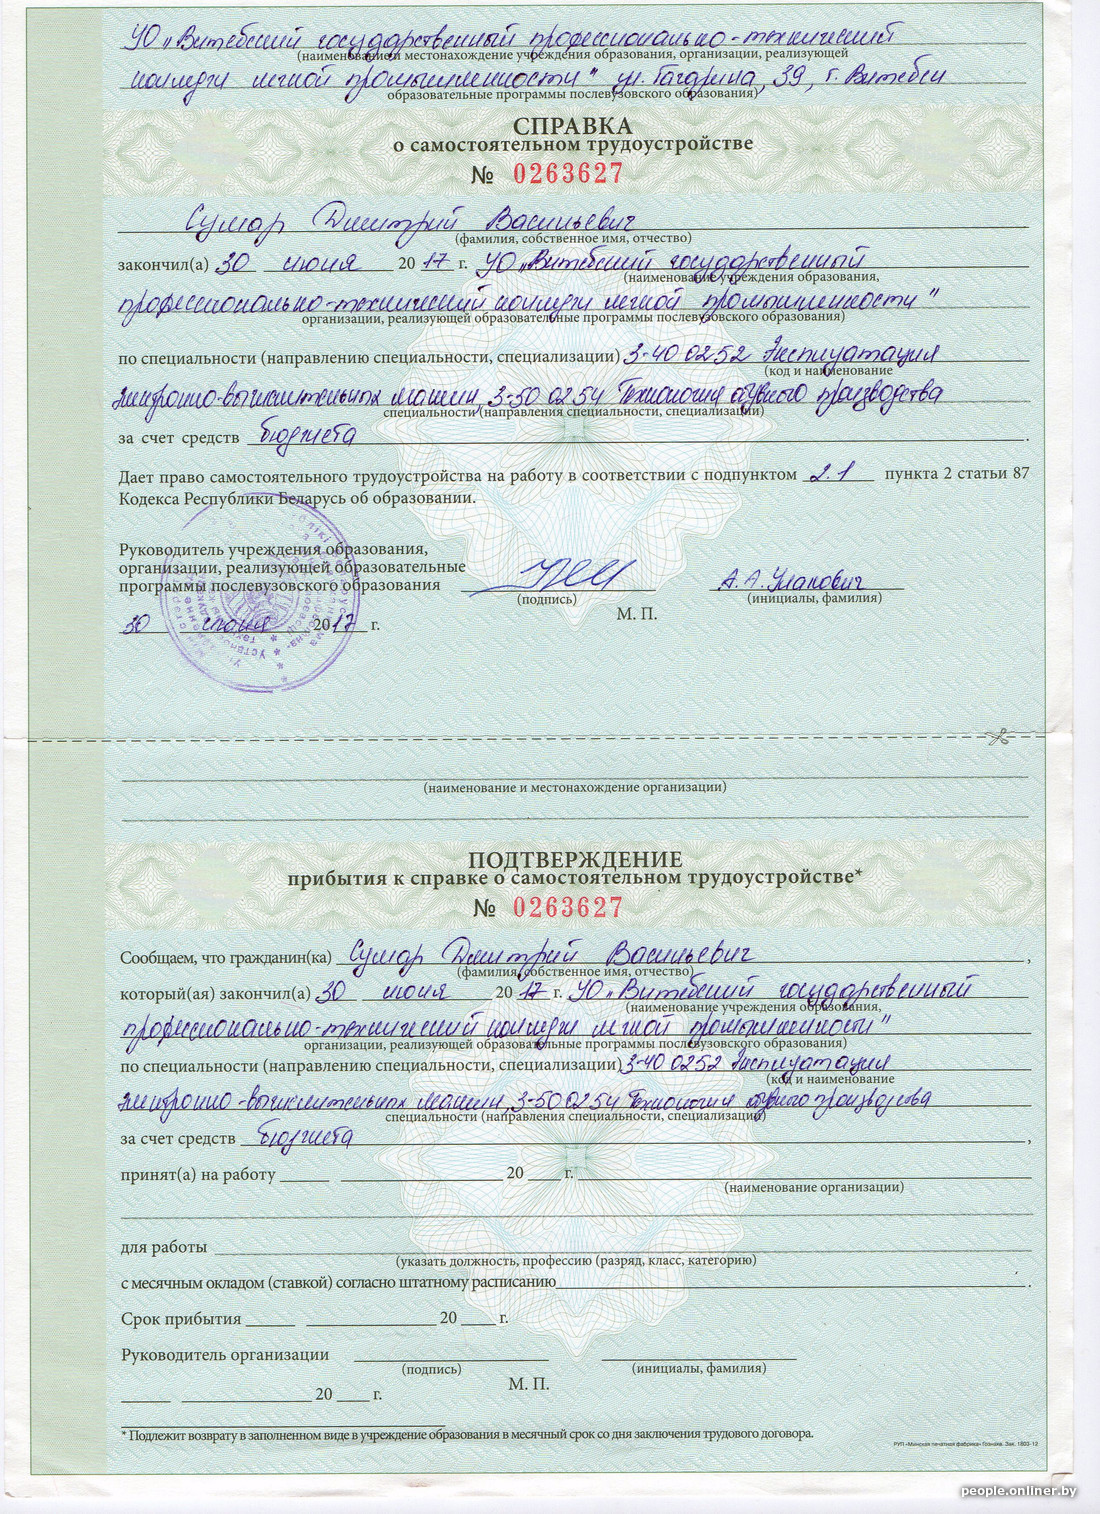 УО „Витебский государственный профессионально-технический
(наименование и местонахождение учреждения образования, организации, реализующей
колледж легкой промышленности" ул. Гагарина, 39, г. Витебск
образовательные программы послевузовского образования)
СПРАВКА
о самостоятельном трудоустройстве
№ 0263627
Сумар Дмитрий Васильевич
(фамилия, собственное имя, отчество)
закончил(а) 30 июня 2017 г. УО „Витебский государственный
(наименование учреждения образования,
профессионально-технический колледж легкой промышленности"
организации, реализующей образовательные программы послевузовского образования)
по специальности (направлению специальности, специализации) 3-40 02 52 Эксплуатация
(код и наименование
электронно-вычислительных машин, 3-50 02 54 Технология обувного производства
специальности (направления специальности, специализации)
за счет средств бюджета.
Дает право самостоятельного трудоустройства на работу в соответствии с подпунктом 2.1 пункта 2 статьи 87
Кодекса Республики Беларусь об образовании.
Руководитель учреждения образования,
организации, реализующей образовательные
программы послевузовского образования
А.А. Улапович
(подпись)
(инициалы, фамилия)
М. П.
30 июня 2017 г.
(наименование и местонахождение организации)
ПОДТВЕРЖДЕНИЕ
прибытия к справке о самостоятельном трудоустройстве*
№ 0263627
Сообщаем, что гражданин(ка) Сумар Дмитрий Васильевич,
(фамилия, собственное имя, отчество)
который(ая) закончил(а) 30 июня 2017 г. УО „Витебский государственный
(наименование учреждения образования,
профессионально-технический колледж легкой промышленности"
организации, реализующей образовательные программы послевузовского образования)
по специальности (направлению специальности, специализации) 3-40 02 52 Эксплуатация
(код и наименование
электронно-вычислительных машин, 3-50 02 54 Технология обувного производства
специальности (направления специальности, специализации)
за счет средств бюджета,
принят(а) на работу 20 г.
(наименование организации)
для работы
(указать должность, профессию (разряд, класс, категорию)
с месячным окладом (ставкой) согласно штатному расписанию.
Срок прибытия 20 г.
Руководитель организации
(подпись)
(инициалы, фамилия)
М. П.
20 г.
* Подлежит возврату в заполненном виде в учреждение образования в месячный срок со дня заключения трудового договора.
РУП «Минская печатная фабрика» Гознака. Зак. 1803-12
people.onliner.by